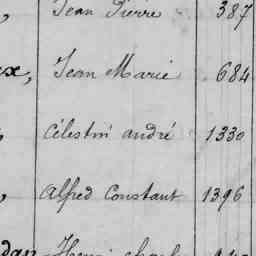 , Jean Pierre 387
ex, Jean Marie 684
, Célestin andré 1330
, Alfred Constant 1396
dan Henri